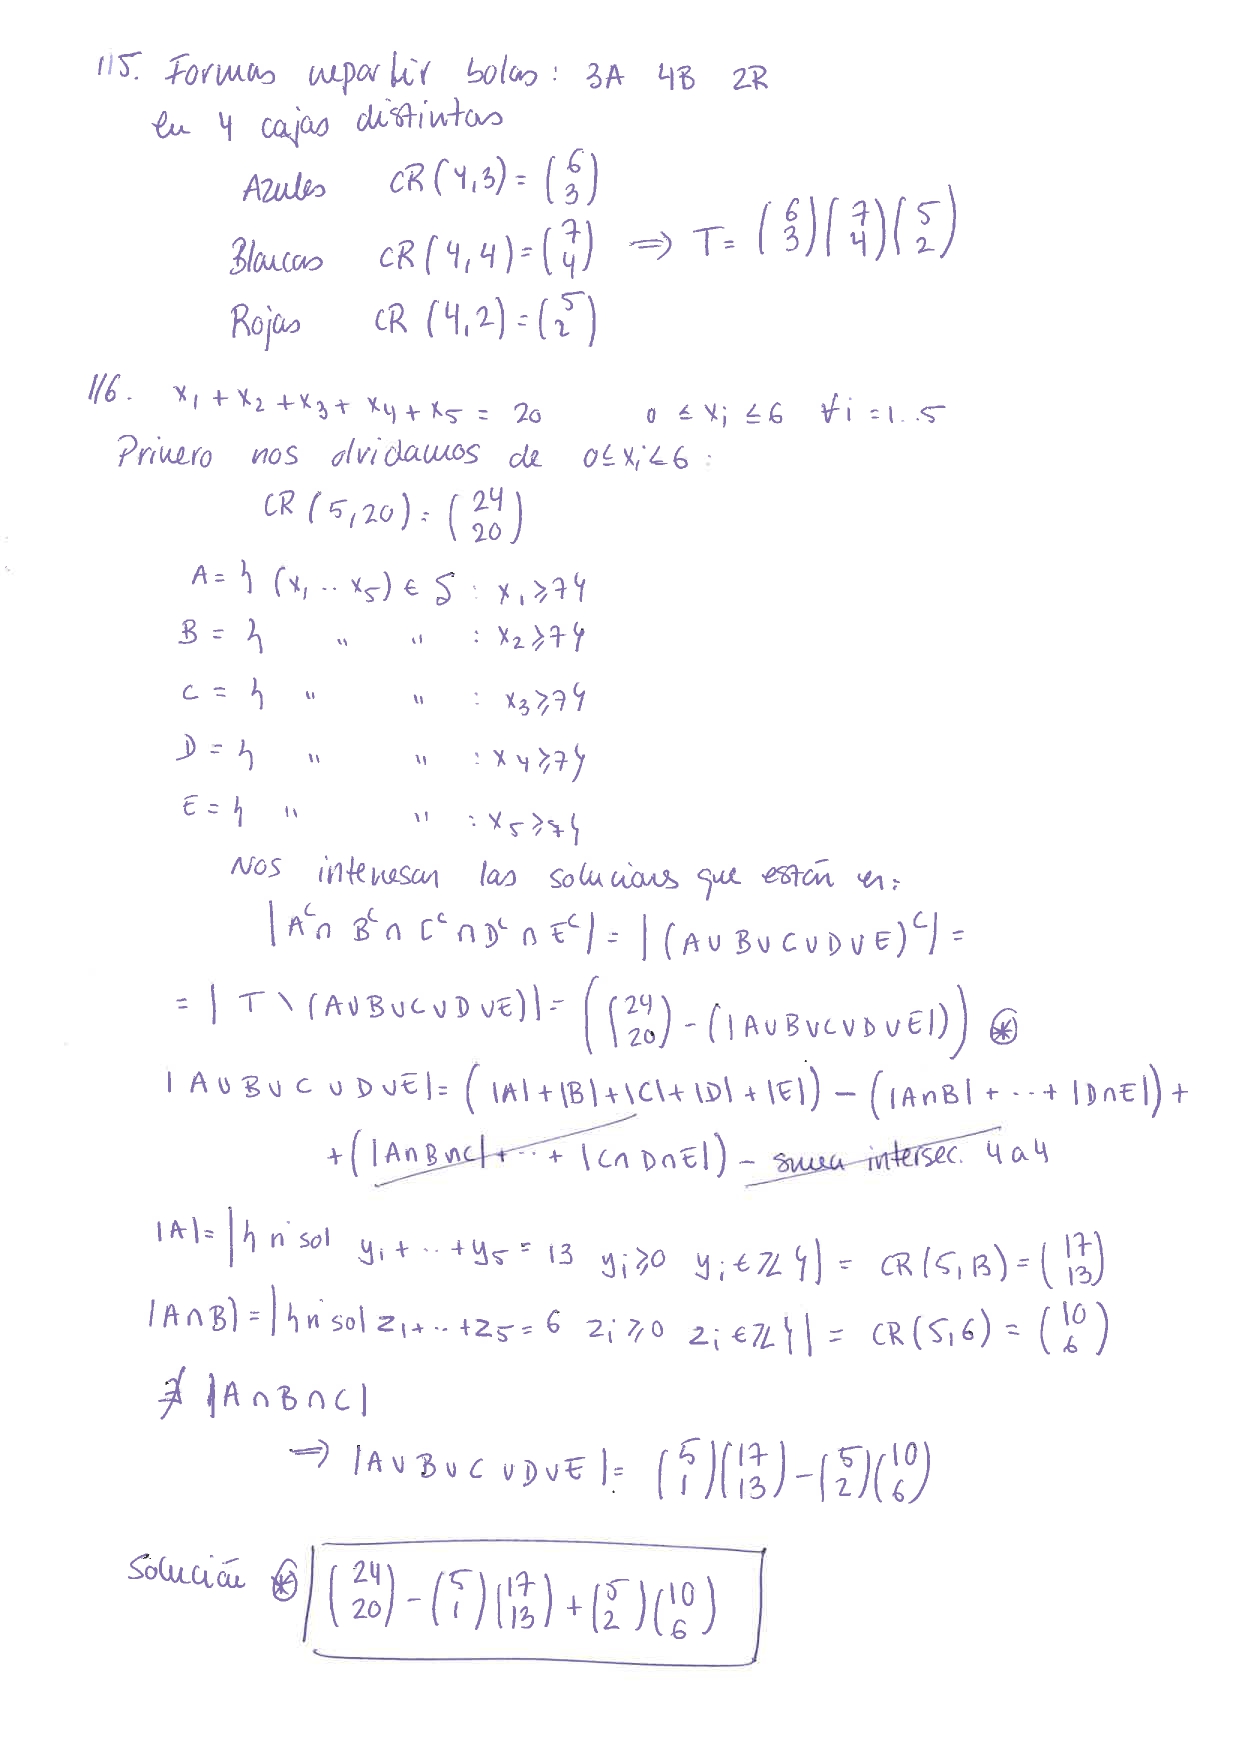 115. Formas repartir bolas: 3A 4B 2R
en 4 cajas distintas
Azules CR(4,3) = (6 3)
Blancas CR(4,4) = (7 4) ⟹ T = (6 3)(7 4)(5 2)
Rojas CR(4,2) = (5 2)
116. x₁ + x₂ + x₃ + x₄ + x₅ = 20 0 ≤ xᵢ ≤ 6 ∀i = 1..5
Primero nos olvidamos de 0 ≤ xᵢ ≤ 6 :
CR(5,20) = (24 20)
A = { (x₁ .. x₅) ∈ S : x₁ ≥ 7}
B = { " " : x₂ ≥ 7}
C = { " " : x₃ ≥ 7}
D = { " " : x₄ ≥ 7}
E = { " " : x₅ ≥ 7}
Nos interesan las solucions que están en:
|Aᶜ ∩ Bᶜ ∩ Cᶜ ∩ Dᶜ ∩ Eᶜ| = |(A ∪ B ∪ C ∪ D ∪ E)ᶜ| =
= | T \ (A ∪ B ∪ C ∪ D ∪ E)| = ((24 20) - (|A ∪ B ∪ C ∪ D ∪ E|)) ⊛
|A ∪ B ∪ C ∪ D ∪ E| = (|A| + |B| + |C| + |D| + |E|) - (|A∩B| + ... + |D∩E|) +
+ (|A∩B∩C| + ... + |C∩D∩E|) - suma intersec. 4 a 4
|A| = |{nº sol y₁ + .. + y₅ = 13 yᵢ ≥ 0 yᵢ ∈ ℤ}| = CR(5,13) = (17 13)
|A∩B| = |{nº sol z₁ + .. + z₅ = 6 zᵢ ≥ 0 zᵢ ∈ ℤ}| = CR(5,6) = (10 6)
∄ |A ∩ B ∩ C|
⟹ |A ∪ B ∪ C ∪ D ∪ E| = (5 1)(17 13) - (5 2)(10 6)
Solución ⊛ (24 20) - (5 1)(17 13) + (5 2)(10 6)